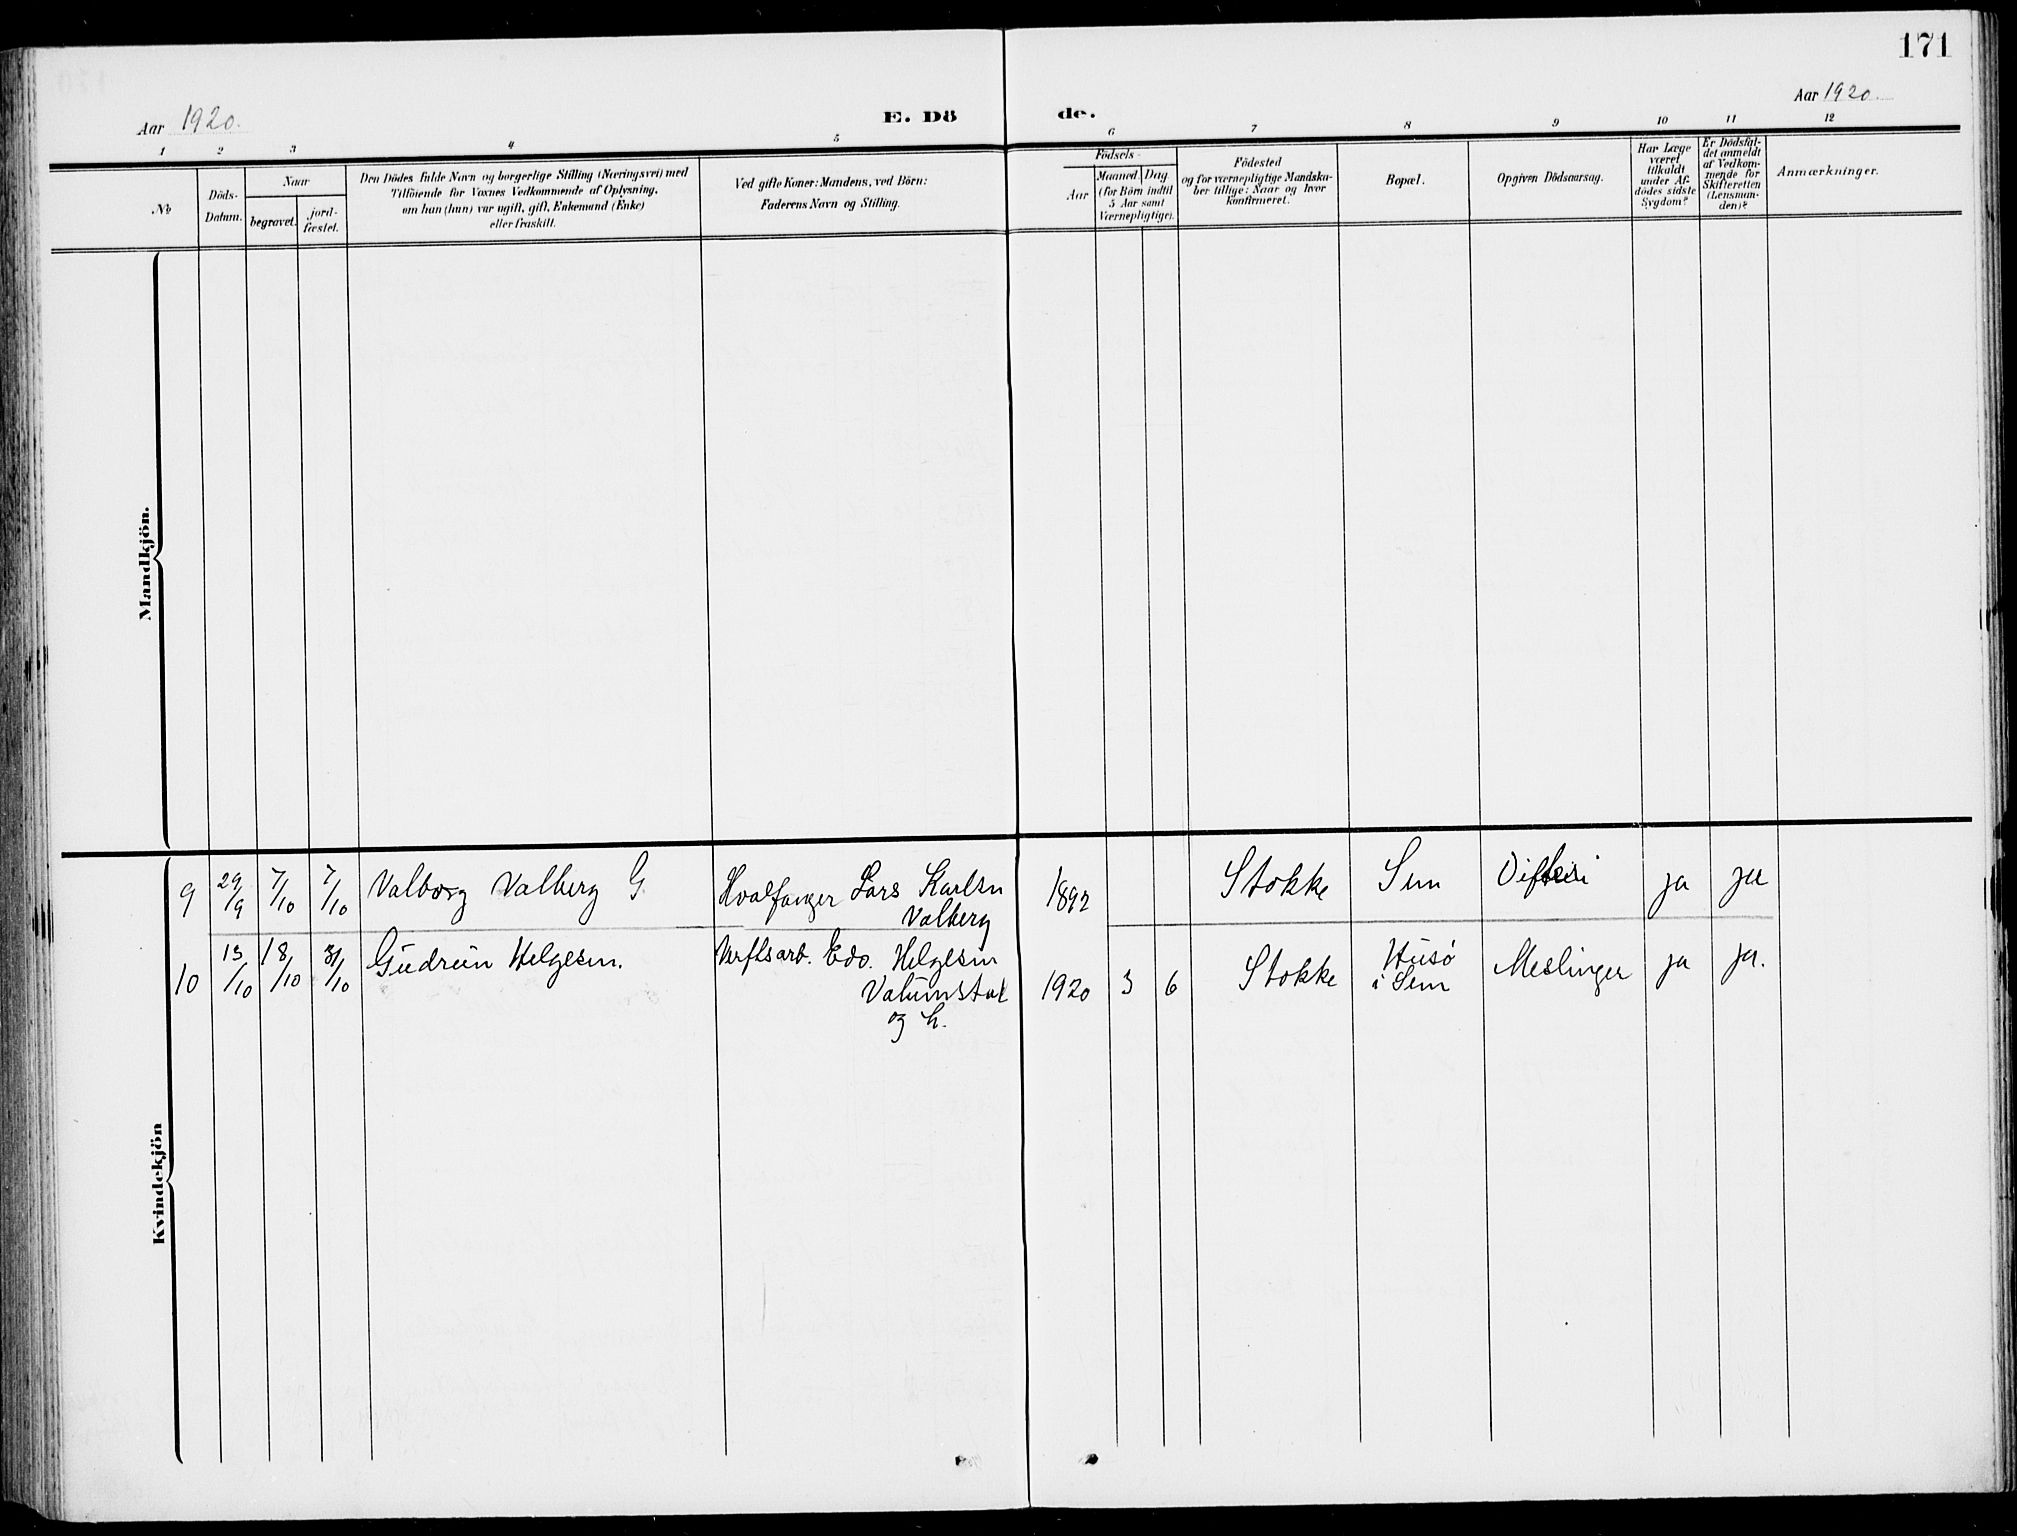 171
Aar 1920.
E. Dö
de.
Aar 1920.
1 2 3 4 5 6 7 8 9 10 11 12
No
Döds-
Datum.
Naar
begravet.
jord-
fæstet.
Den Dödes fulde Navn og borgerlige Stilling (Næringsvei) med
Tilföiende for Voxnes Vedkommende af Oplysning,
om han (hun) var ugift, gift, Enkemand (Enke)
eller fraskilt.
Ved gifte Koner: Mandens, ved Börn:
Faderens Navn og Stilling.
Födsels-
Aar
Maaned
Dag
(for Börn indtil
5 Aar samt
Værnepligtige).
Födested
og for værnepligtige Mandska-
ber tillige: Naar og hvor
konfirmeret.
Bopæl.
Opgiven Dödsaarsag.
Har Læge
været
tilkaldt
under Af-
dödes sidste
Sygdom?
Er Dödsfal-
det anmeldt
af Vedkom-
mende for
Skifteretten
(Lensman-
den)?
Anmærkninger.
Mandkjön.
Kvindekjön
9 29/9 7/10 7/10 Valborg Valberg G Hvalfanger Lars Karlsen
Valberg
1892 Stokke Sem Difteri ja ja
10 13/10 18/10 31/10 Gudrun Helgesen. Verftsarb. Edv. Helgesen
og h.
1920 3 6 Stokke Husø
i Sem
Meslinger ja ja.